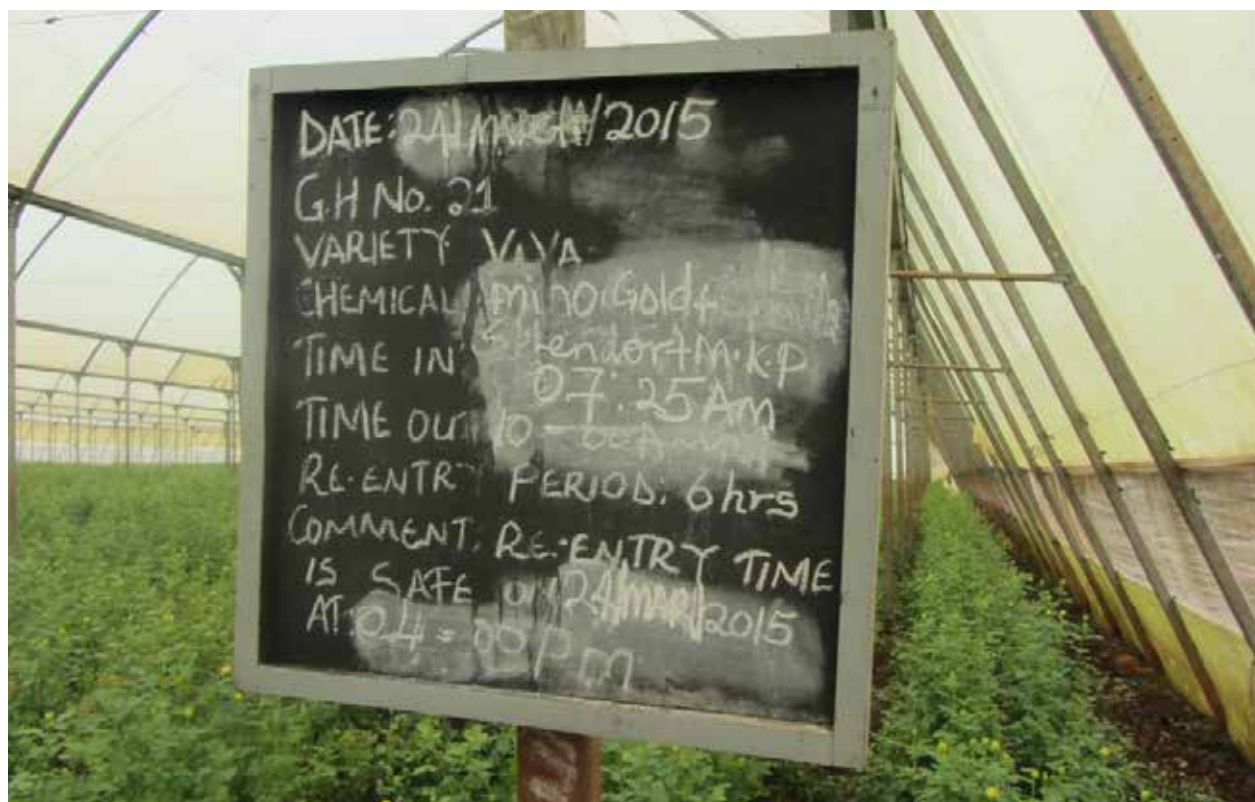 DATE: 24/MARCH/2015
G.H No. 21
VARIETY VIVA
CHEMICAL: Amino Gold +
Splendor + M.K.P
TIME IN 07.25 Am
TIME OUT 10-00 Am
RE-ENTRY PERIOD: 6hrs
COMMENT: RE-ENTRY TIME
IS SAFE ON 24/MAR/2015
AT: 04-00 pm